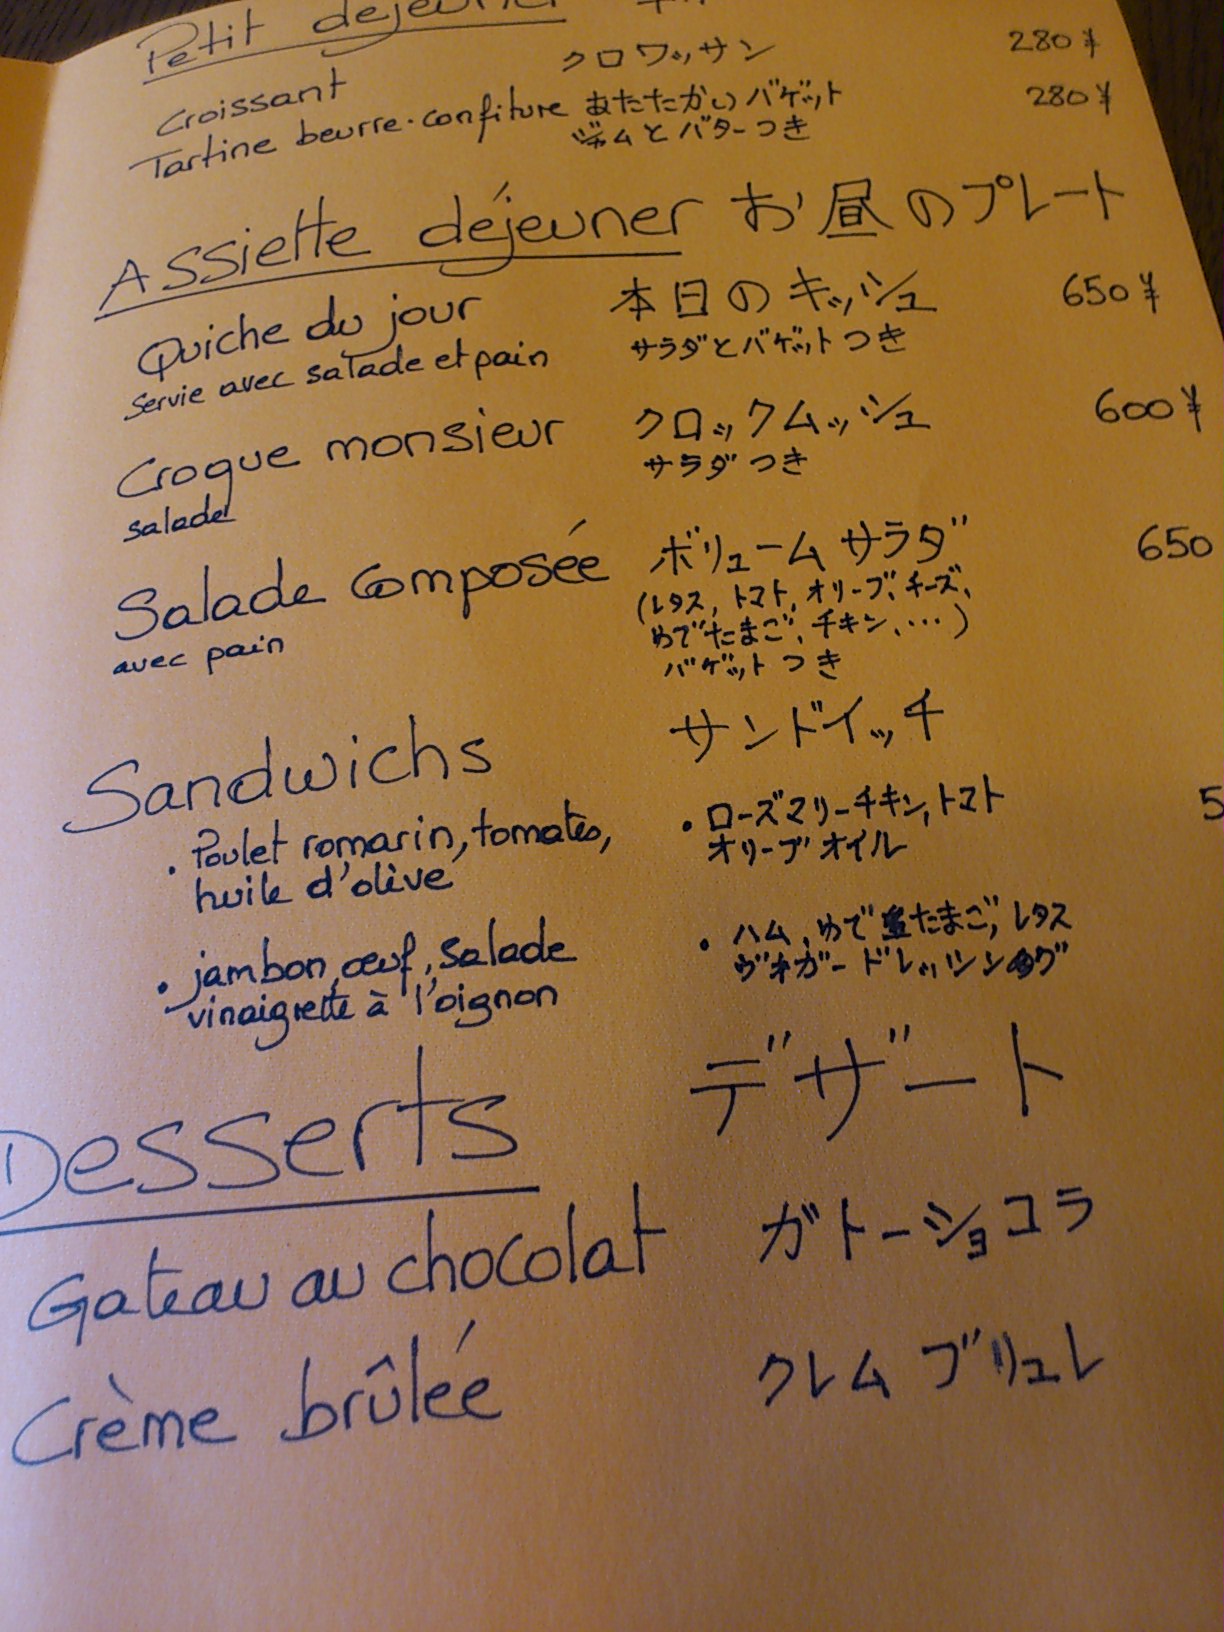 Petit déjeuner
Croissant クロワッサン 280¥
Tartine beurre-confiture あたたかいバゲット 280¥
ジャムとバターつき
Assiette déjeuner お昼のプレート
Quiche du jour 本日のキッシュ 650¥
servie avec salade et pain サラダとバゲットつき
Croque monsieur クロックムッシュ 600¥
salade サラダつき
Salade composée ボリュームサラダ 650
(レタス, トマト, オリーブ, チーズ,
avec pain ゆでたまご, チキン, ...)
バゲットつき
Sandwichs サンドイッチ
• Poulet romarin, tomates, • ローズマリーチキン, トマト 5
huile d'olive オリーブオイル
• jambon, œuf, salade • ハム, ゆでたまご, レタス
vinaigrette à l'oignon ドレッシング
Desserts デザート
Gateau au chocolat ガトーショコラ
Crème brûlée クレムブリュレ